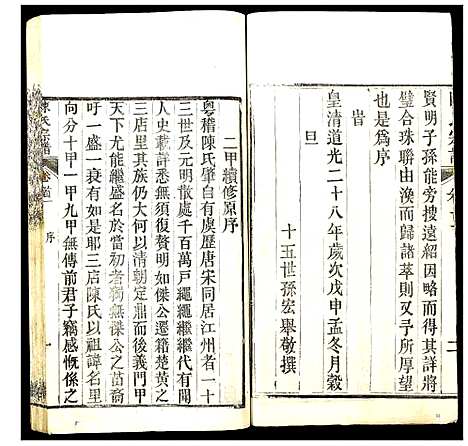 賢明子孫能旁搜遠紹因畧而得其詳將
璧合珠聯由渙而歸諸萃則予所厚望
也是爲序
旹
皇清道光二十八年歲次戊申孟冬月穀
旦
十五世孫宏舉敬撰
二甲續修原序
粵稽陳氏肇自有虞歷唐宋同居江州一十
三世及元明散處千百萬戸繩繩繼繼代有聞
人史載詳悉無俟復贅明初如傑公遷籍楚黃之
三店里其族乃分迨至清朝定鼎而後義門甲
天下尤能繼盛名於當初者獨無傑公之苗裔
吁一盛一衰有如是耶三店陳氏以祖諱名里
向分十甲一甲九甲無傳前君子竊感慨係之
陳氏宗譜
卷首
序
一
二